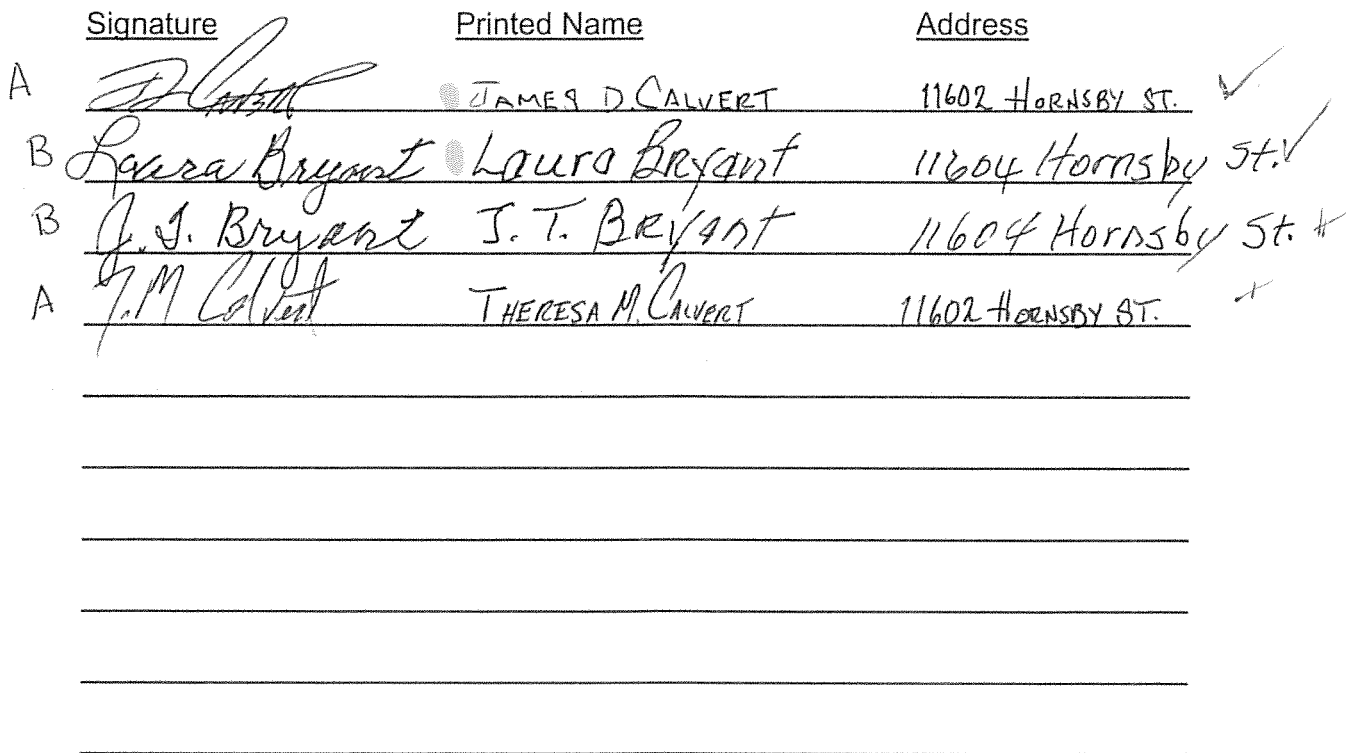 Signature Printed Name Address
A JD Calvert JAMES D. CALVERT 11602 HORNSBY ST. ✓
B Laura Bryant Laura Bryant 11604 Hornsby St. ✓
B J. T. Bryant J. T. Bryant 11604 Hornsby St. +
A T.M Calvert THERESA M. CALVERT 11602 HORNSBY ST. +